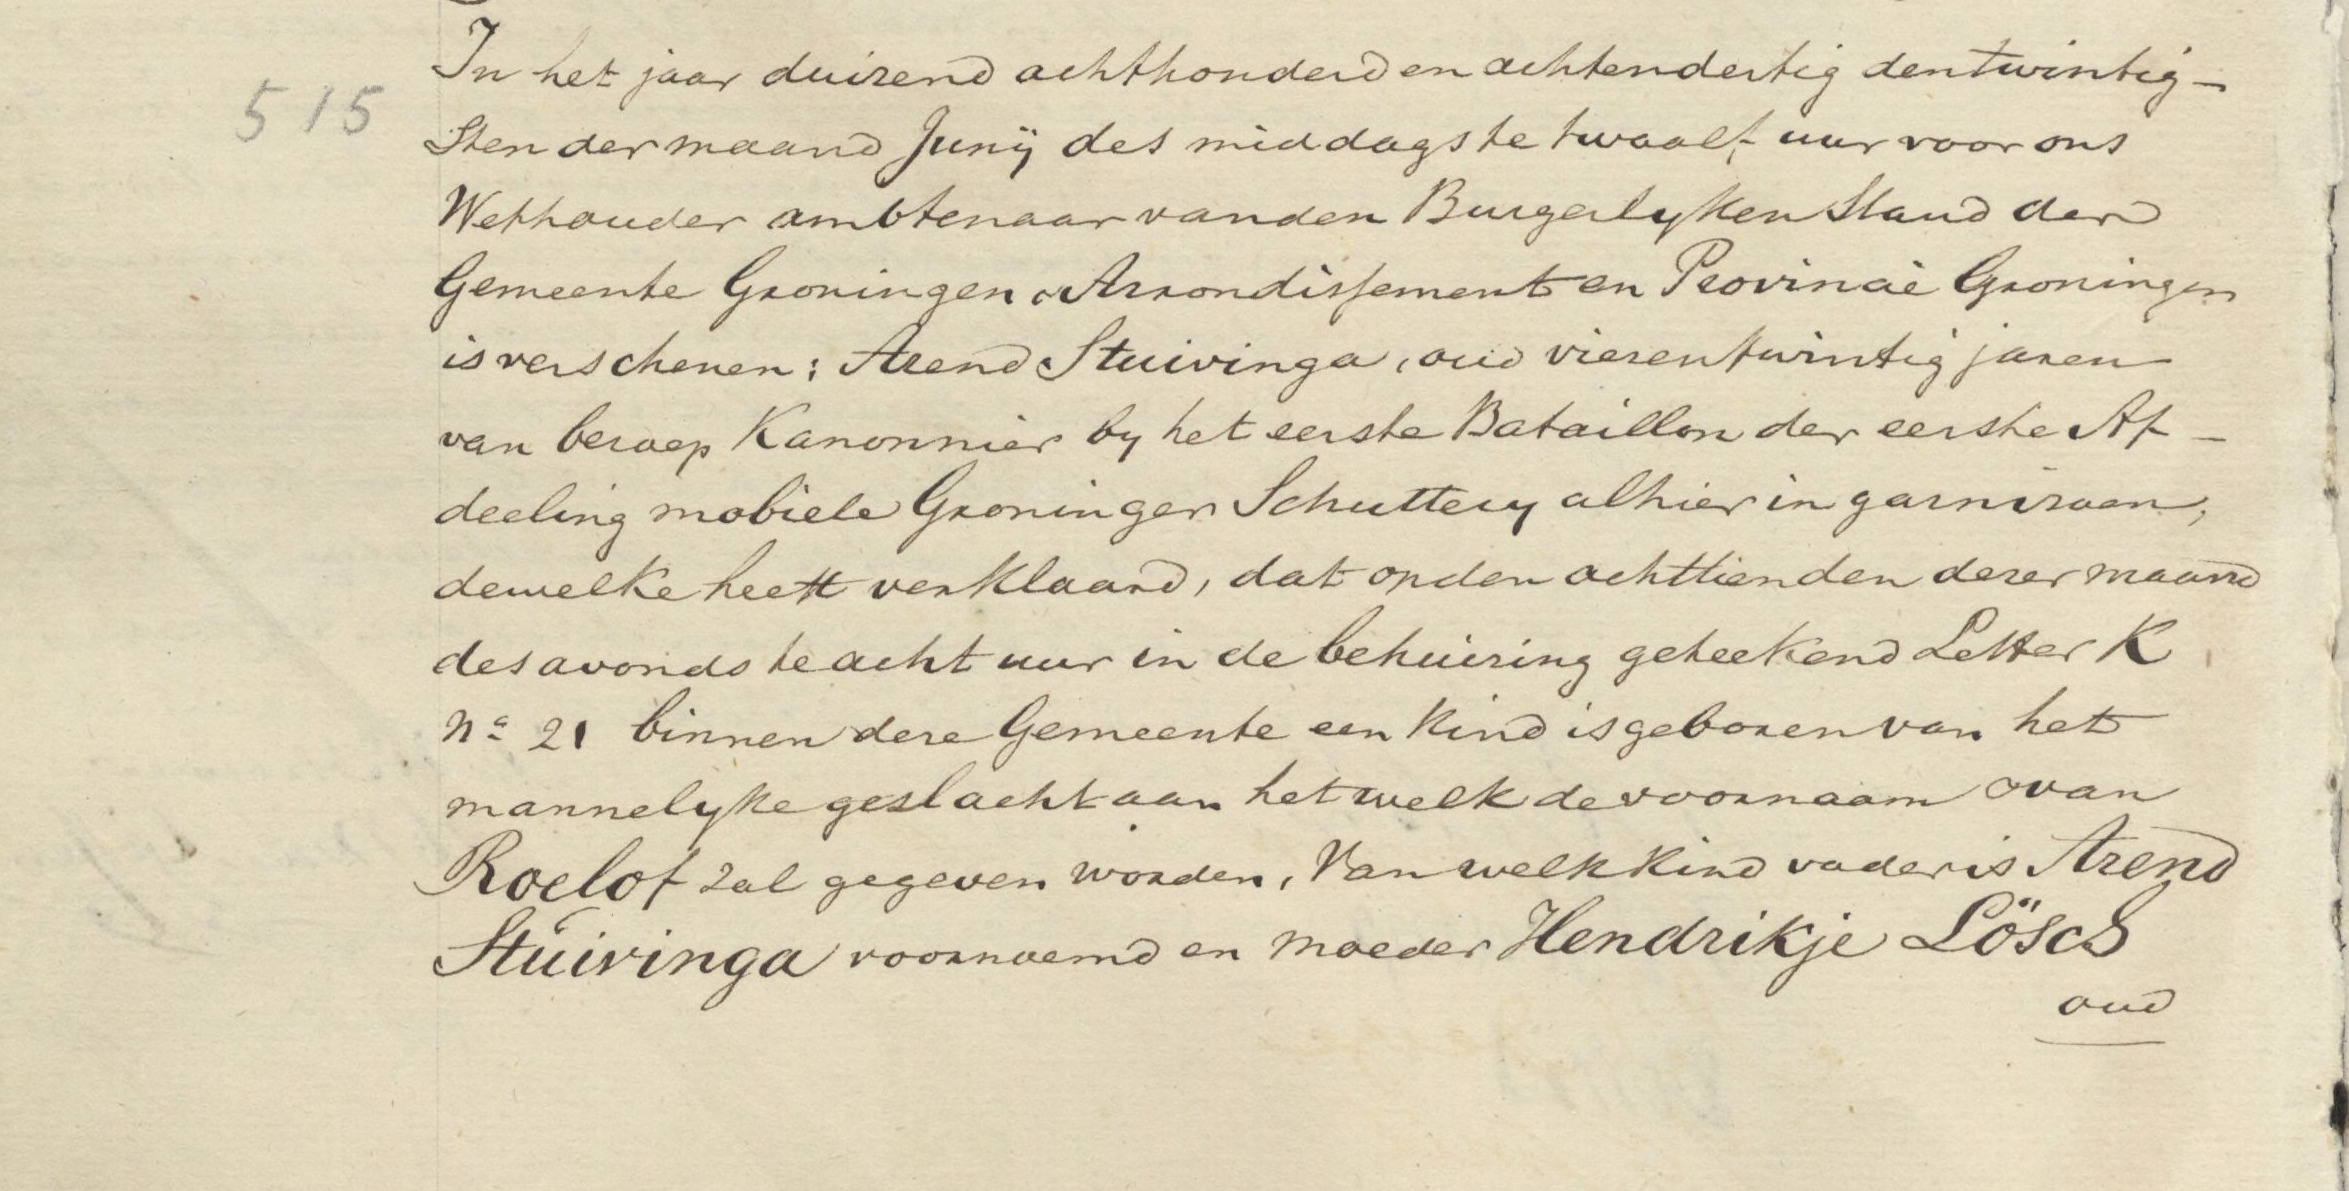 515
In het jaar duizend achthonderd en achtendertig den twintig-
sten der maand Junÿ des middags te twaalf uur voor ons
Wethouder ambtenaar van den Burgerlyken Stand der
Gemeente Groningen, Arrondissement en Provincie Groningen
is verschenen: Arend Stuivinga, oud vierentwintig jaren
van beroep Kanonnier by het eerste Bataillon der eerste Af-
deeling mobiele Groninger Schuttery alhier in garnizoen,
dewelke heeft verklaard, dat op den achttienden dezer maand
des avonds te acht uur in de behuizing geteekend Letter K
No 21 binnen deze Gemeente een kind is geboren van het
mannelyke geslacht aan het welk de voornaam van
Roelof zal gegeven worden, Van welk kind vader is Arend
Stuivinga voornoemd en moeder Hendrikje Lösch
oud